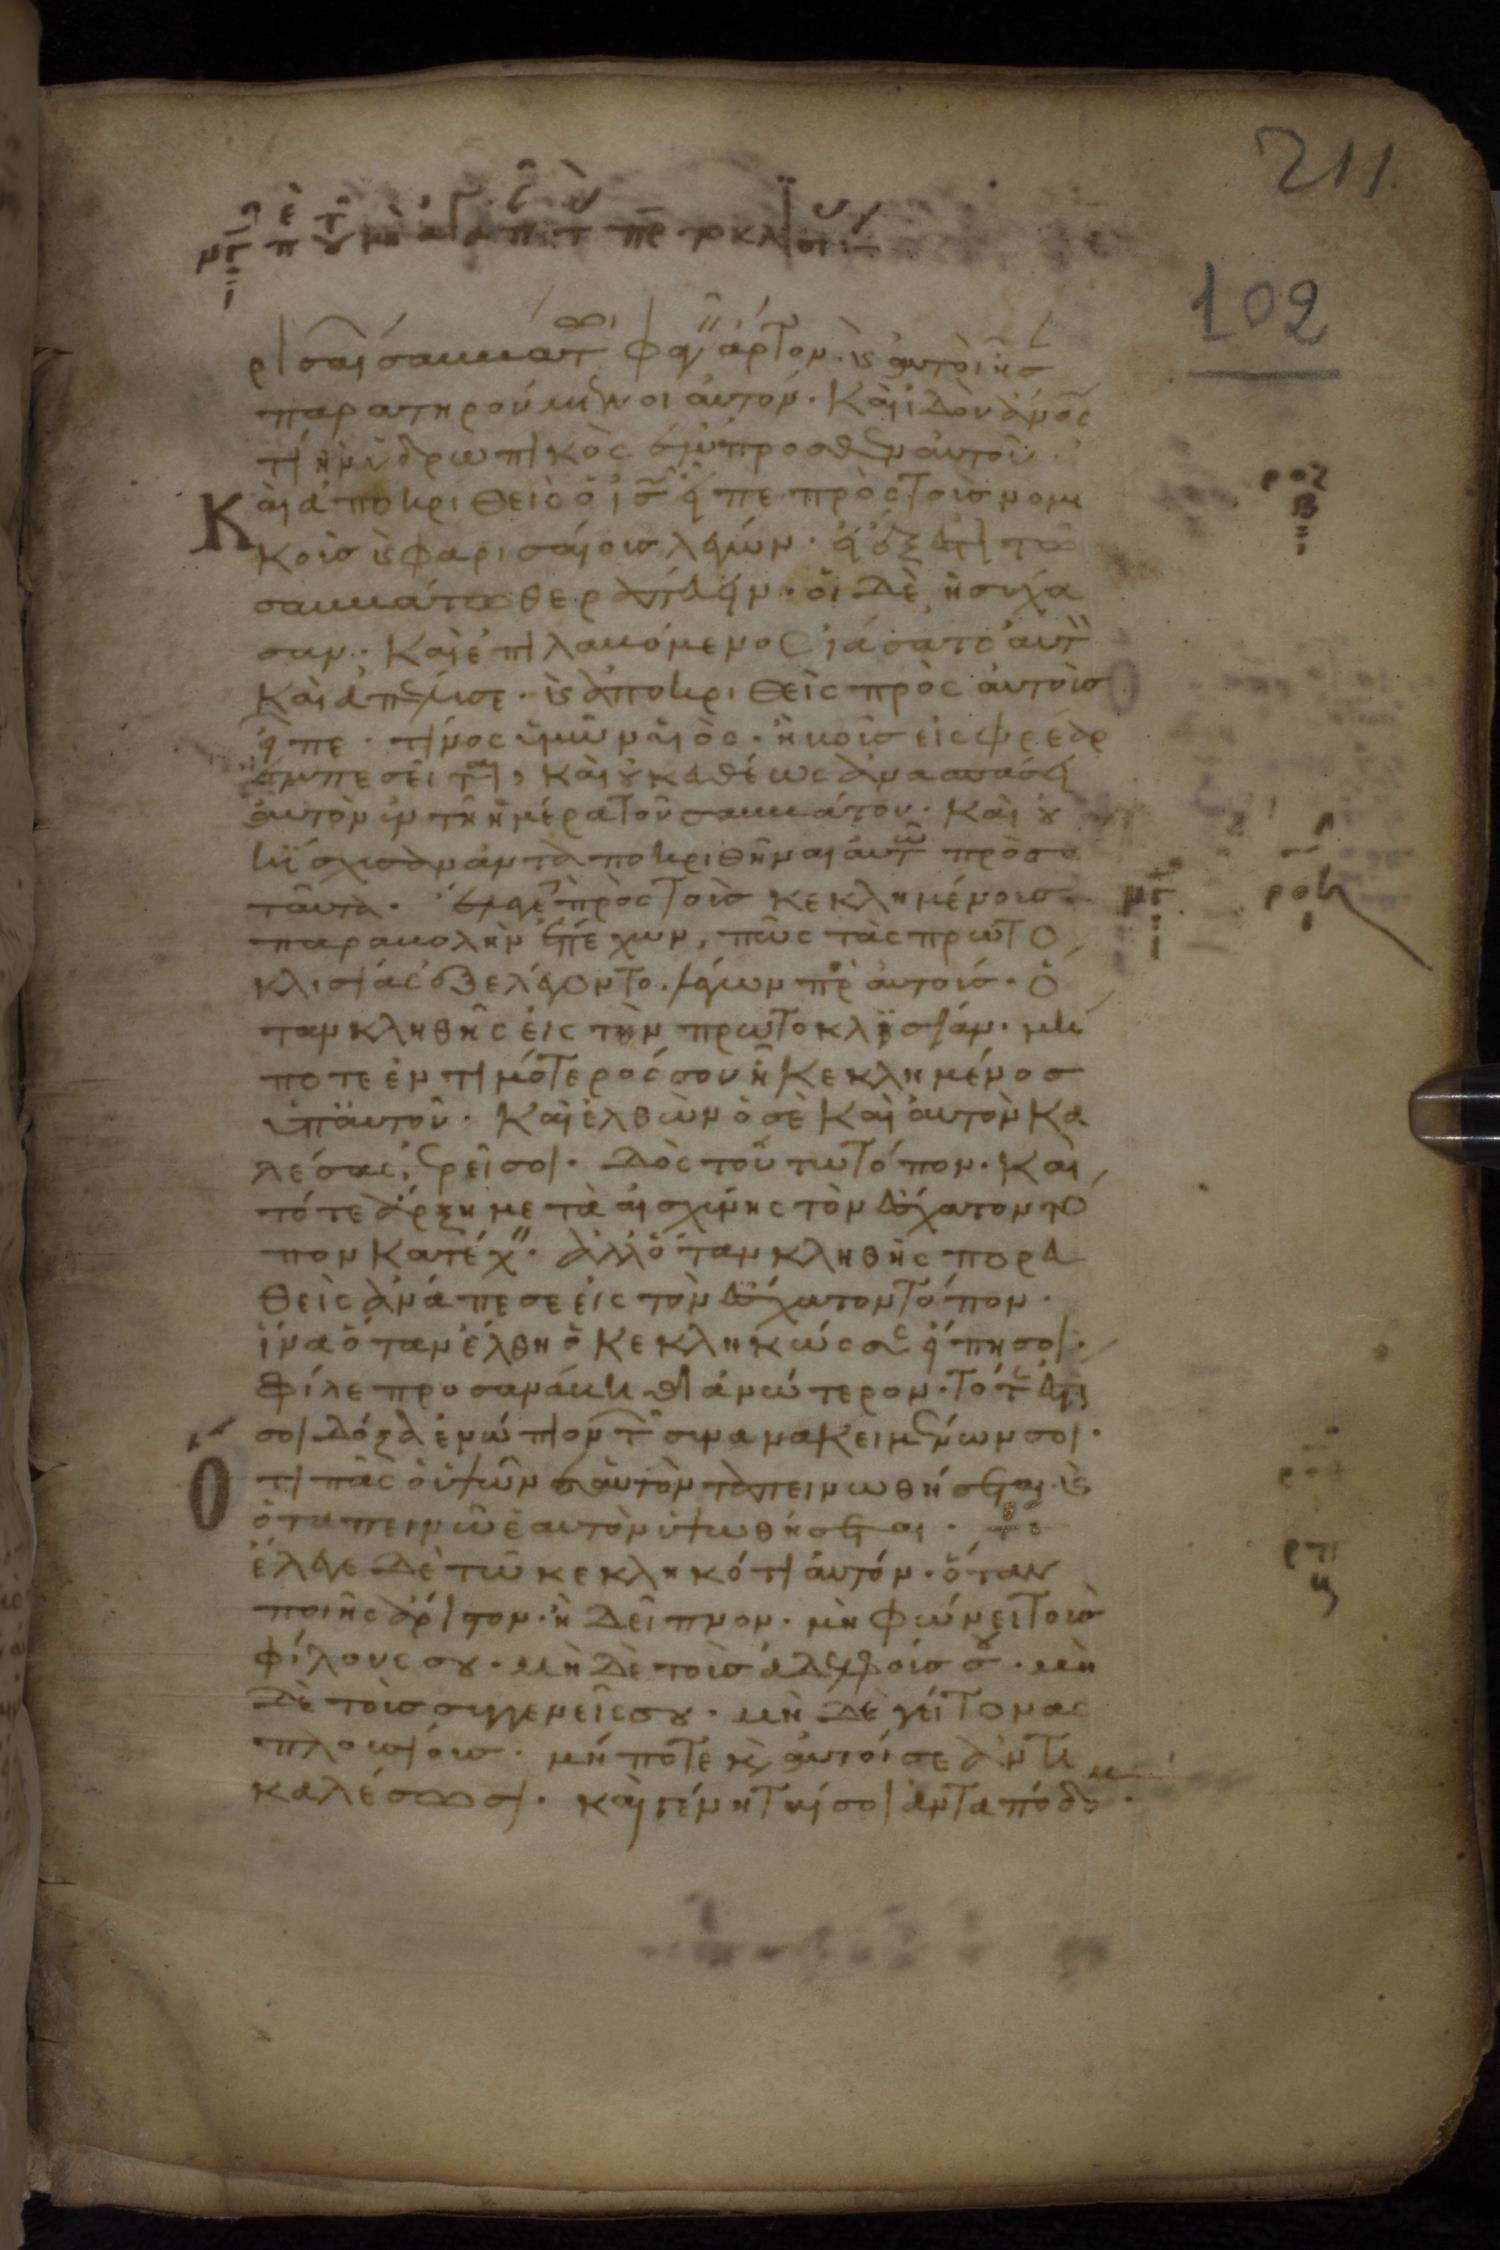 211
102
ρισαίων σαββάτω φαγεῖν ἄρτον. κ αὐτοὶ ἦσ
παρατηρούμενοι αὐτόν. Καὶ ἰδοὺ ἄνος
τὶς ἦν ὑδρωπικὸς ἔμπροσθεν αὐτοῦ.
Καὶ ἀποκριθεὶς ὁ ις εἶπε πρὸς τοὺς νομι
κοὺς κ φαρισαίους λέγων. εἰ ἔξεστι τῶ
σαββάτω θεραπεύειν. οἱ δὲ ἡσύχα
σαν. Καὶ ἐπιλαβόμενος ἰάσατο αὐτὸν
καὶ ἀπέλυσε. κ ἀποκριθεὶς πρὸς αὐτοὺς
εἶπε. τίνος ὑμῶν υἱὸς. ἢ βοῦς εἰς φρέαρ
ἐμπεσεῖται, καὶ οὐκ εὐθέως ἀνασπάσει
αὐτὸν ἐν τῆ ἡμέρα τοῦ σαββάτου. Καὶ οὐ
κ ἴσχυσαν ἀνταποκριθῆναι αὐτῶ πρὸς
ταῦτα. ἔλεγε πρὸς τοὺς κεκλημένους
παραβολὴν ἐπέχων, πῶς τὰς πρωτο
κλισίας ἐξελέγοντο. λέγων πρὸς αὐτούς. ὅ
ταν κληθῆς εἰς τὴν πρωτοκλησίαν. μή
ποτε ἐντιμότερός σου ἦ κεκλημένος
ὑπ αὐτοῦ. Καὶ ἐλθὼν ὁ σὲ καὶ αὐτὸν κα
λέσας, ἐρεῖ σοι. δὸς τούτω τόπον. Καὶ
τότε ἄρξη μετὰ αἰσχύνης τὸν ἔσχατον τό
πον κατέχειν. ἀλλ ὅταν κληθῆς πορευ
θεὶς ἀνάπεσε εἰς τὸν ἔσχατον τόπον.
ἵνα ὅταν ἔλθη ὁ κεκληκώς σε εἴπη σοι.
Φίλε προσανάβηθι ἀνώτερον. τότε ἔσται
σοι δόξα ἐνώπιον τῶν συνανακειμένων σοι.
Ὅτι πᾶς ὁ ὑψῶν ἑαυτὸν ταπεινωθήσεται. κ
ὁ ταπεινῶν ἑαυτὸν ὑψωθήσεται.
ἔλεγε δὲ τῶ κεκληκότι αὐτόν. ὅταν
ποιῆς ἄριστον. ἢ δεῖπνον. μὴ φώνει τοὺς
φίλους σου. μὴ δὲ τοὺς ἀδελφούς σου. μὴ
δὲ τοὺς συγγενεῖς σου. μὴ δὲ γείτονας
πλουσίους. μήποτε κ αὐτοί σε ἀντι
καλέσωσι. καὶ γένηταί σοι ἀνταπόδο